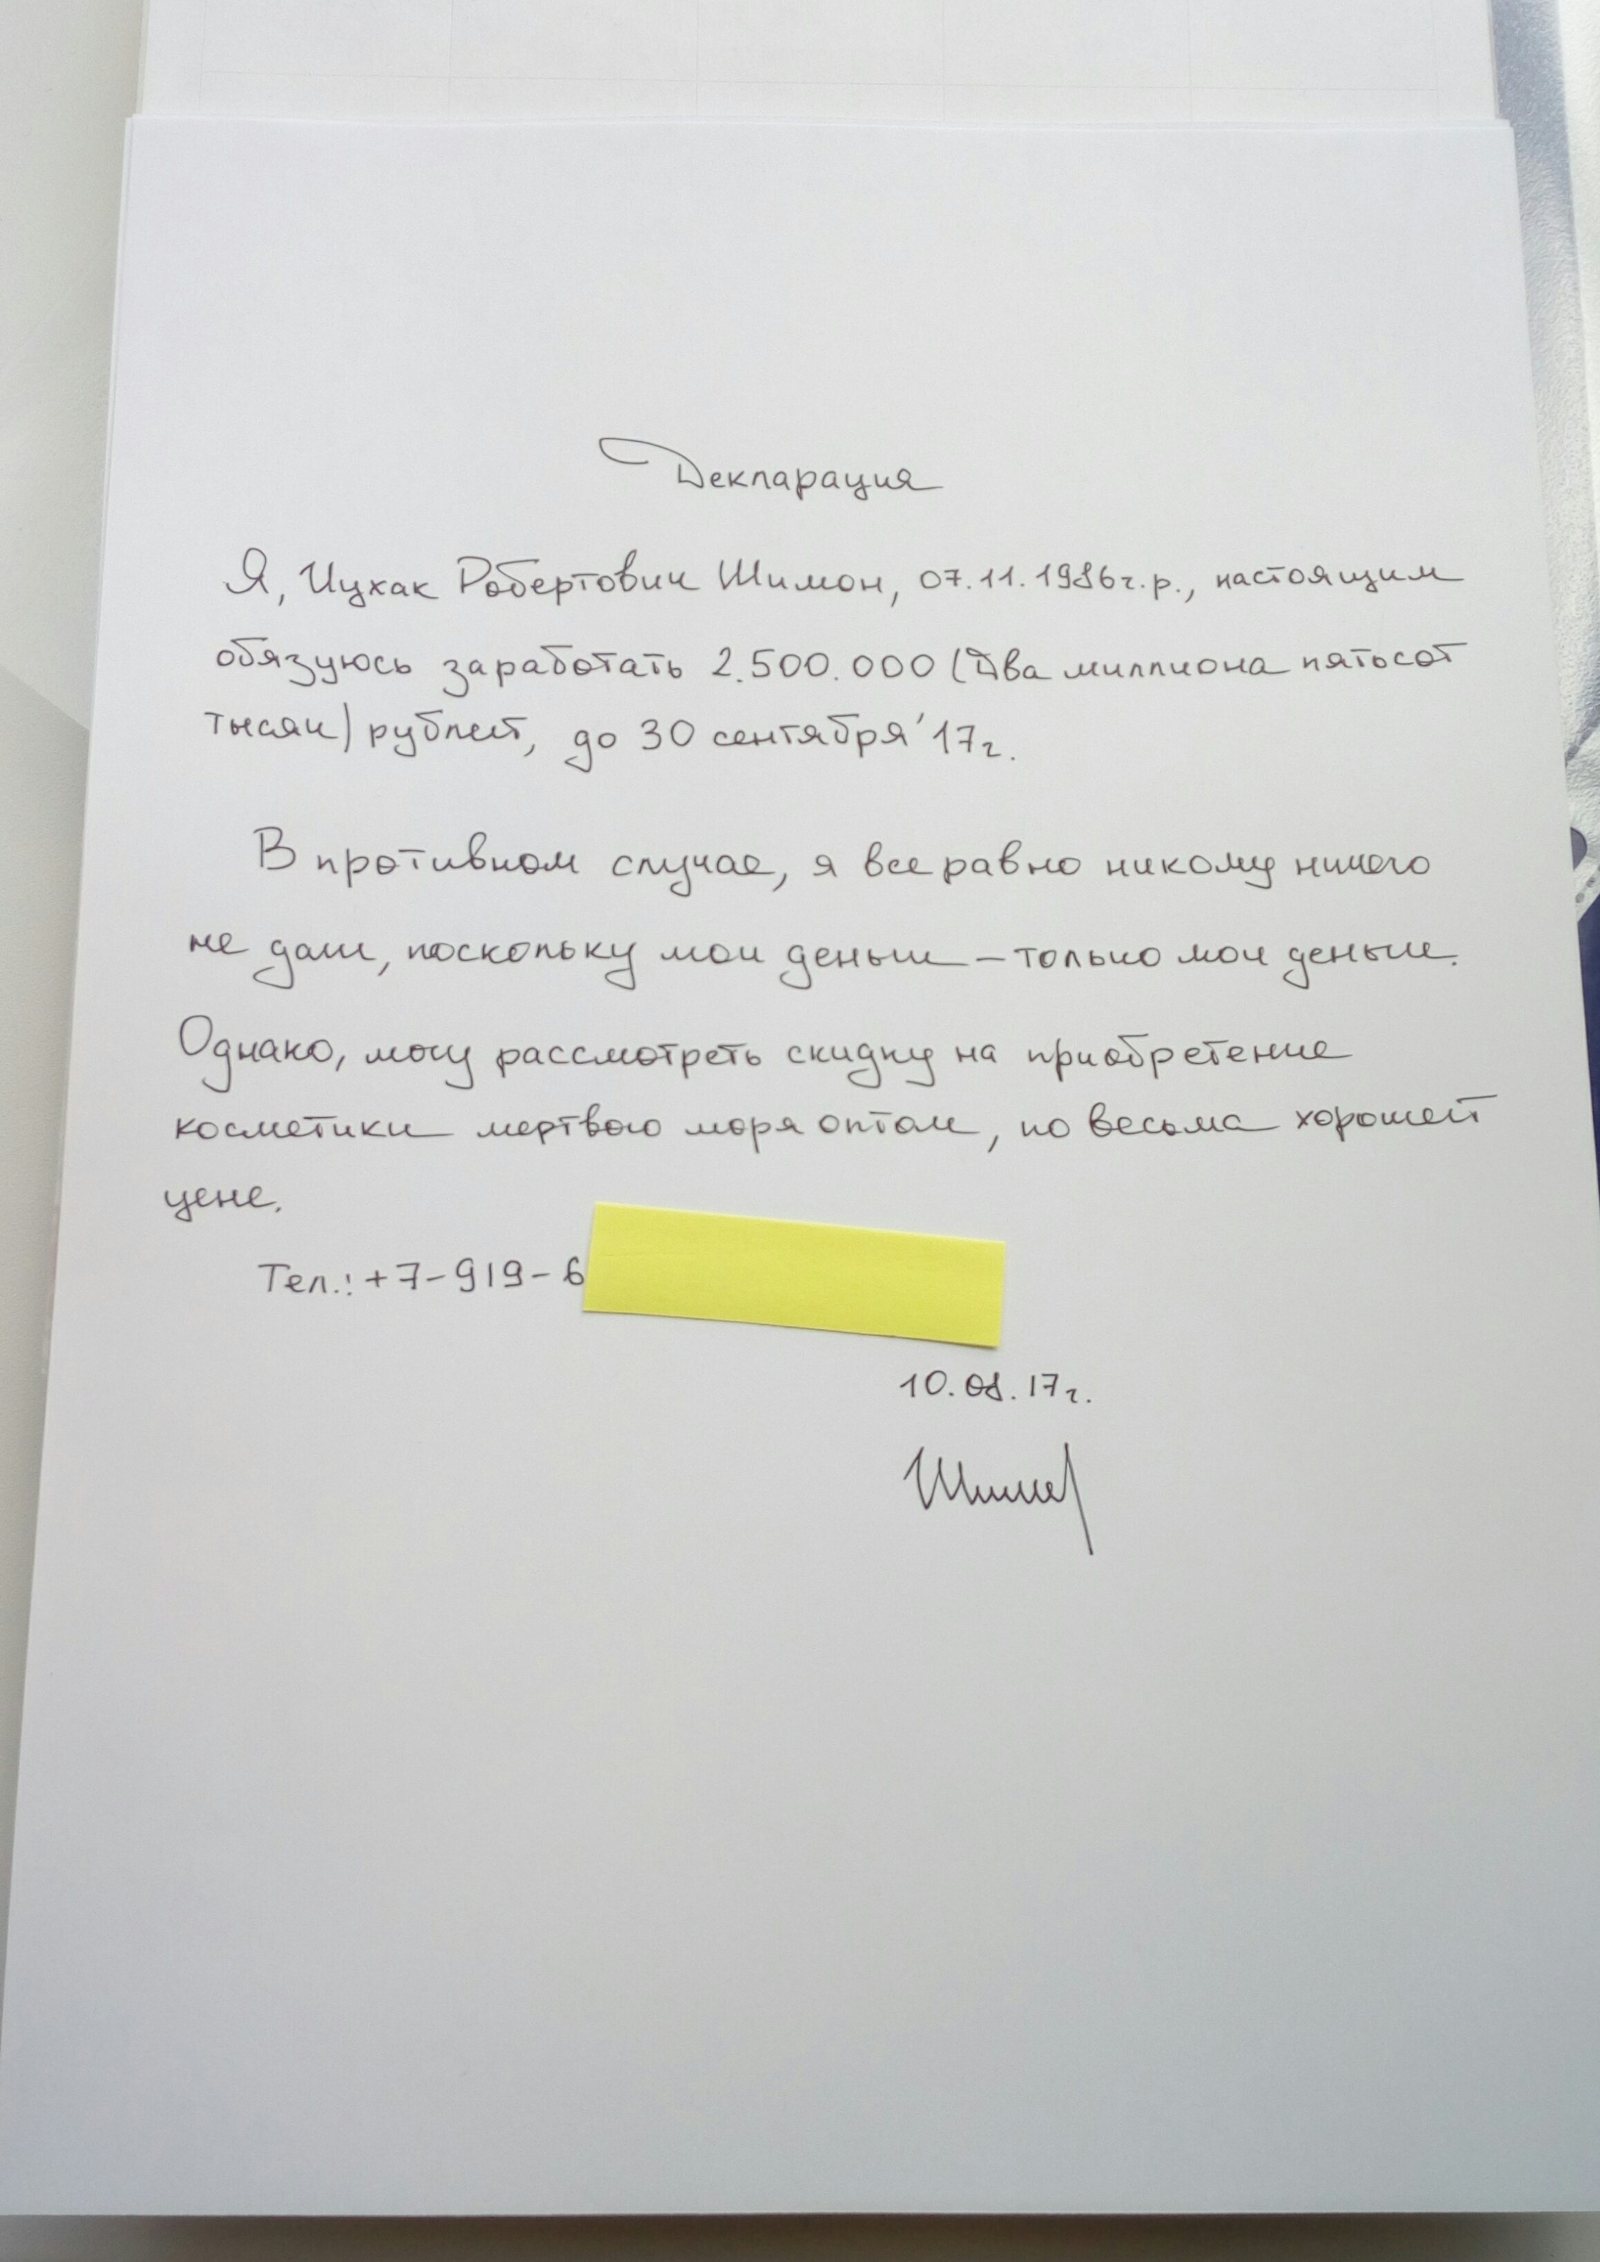 Декларация
Я, Ицхак Робертович Шимон, 07.11.1986г.р., настоящим
обязуюсь заработать 2.500.000 (Два миллиона пятьсот
тысяч) рублей, до 30 сентября '17г.
В противном случае, я все равно никому ничего
не дам, поскольку мои деньги – только мои деньги.
Однако, могу рассмотреть скидку на приобретение
косметики мертвого моря оптом, по весьма хорошей
цене.
Тел.: +7-919-6
10.08.17г.